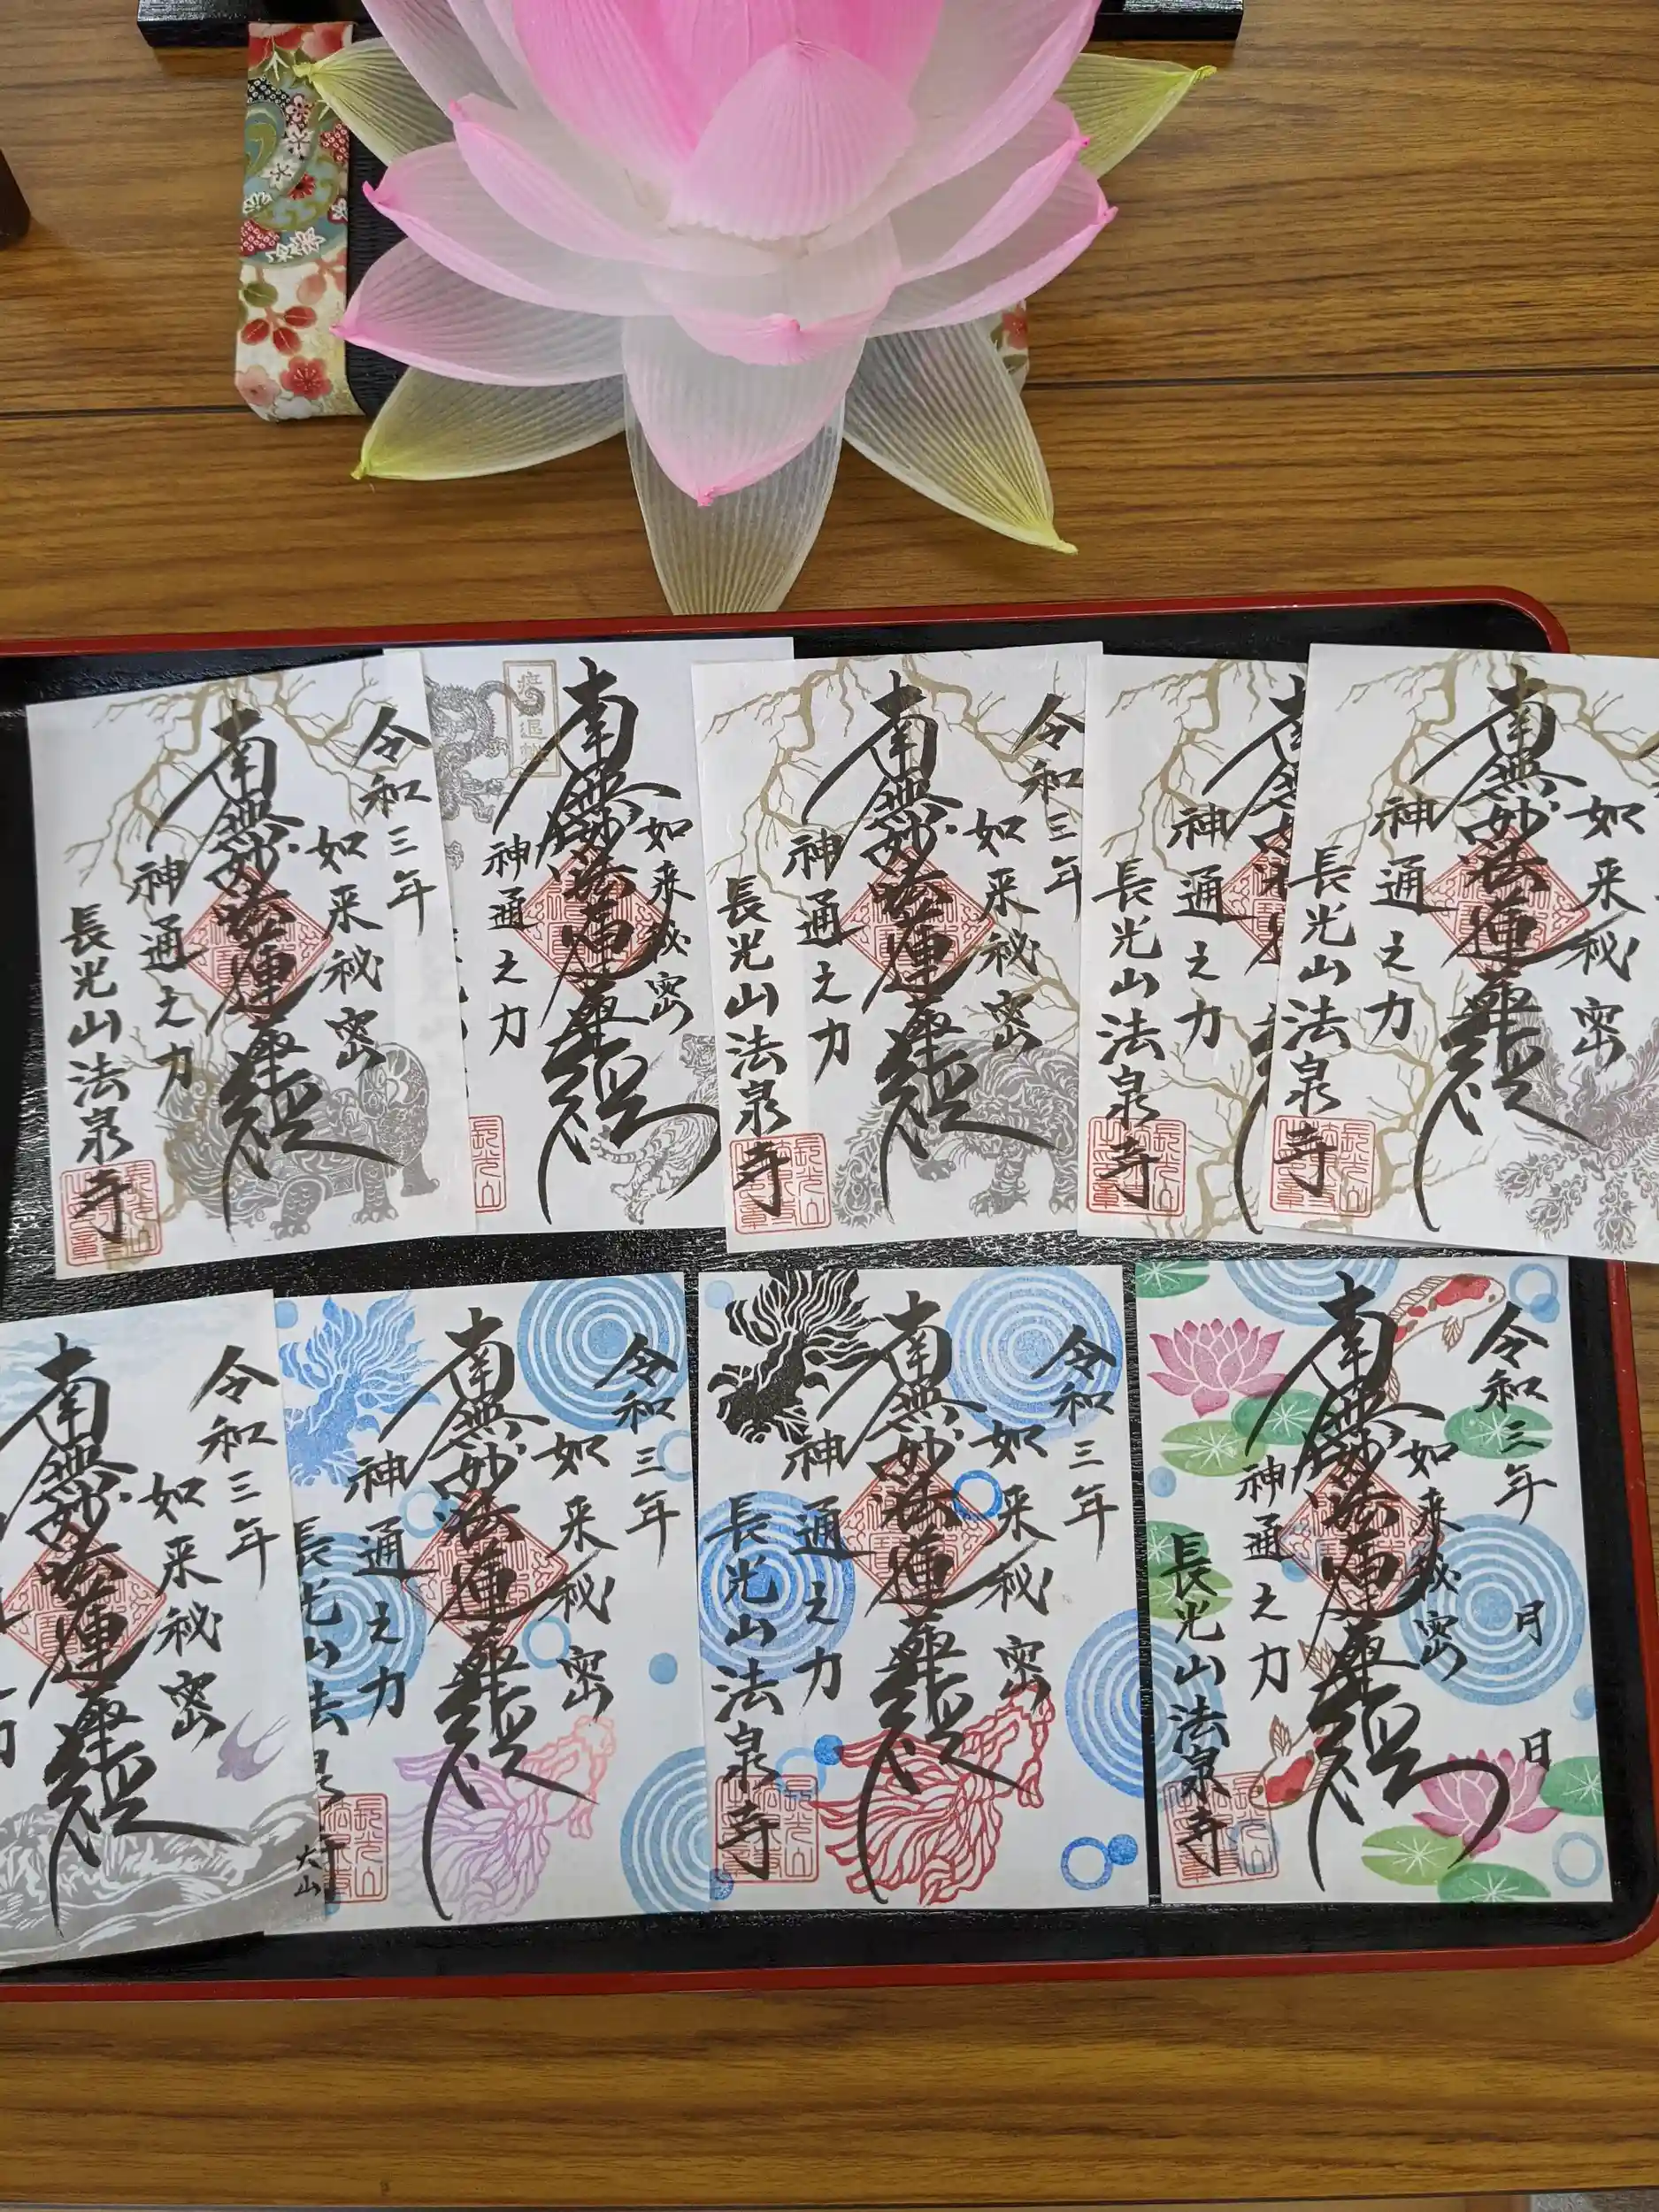 令和三年
如来秘密
南無妙法蓮華経
神通之力
長光山法泉寺
如来秘密
南無妙法蓮華経
神通之力
令和三年
如来秘密
南無妙法蓮華経
神通之力
長光山法泉寺
神通之力
長光山法泉寺
如来秘密
南無妙法蓮華経
神通之力
長光山法泉寺
令和三年
如来秘密
南無妙法蓮華経
大山
令和三年
如来秘密
南無妙法蓮華経
神通之力
長光山法泉
令和三年
如来秘密
南無妙法蓮華経
神通之力
長光山法泉寺
令和三年 月 日
如来秘密
南無妙法蓮華経
神通之力
長光山法泉寺